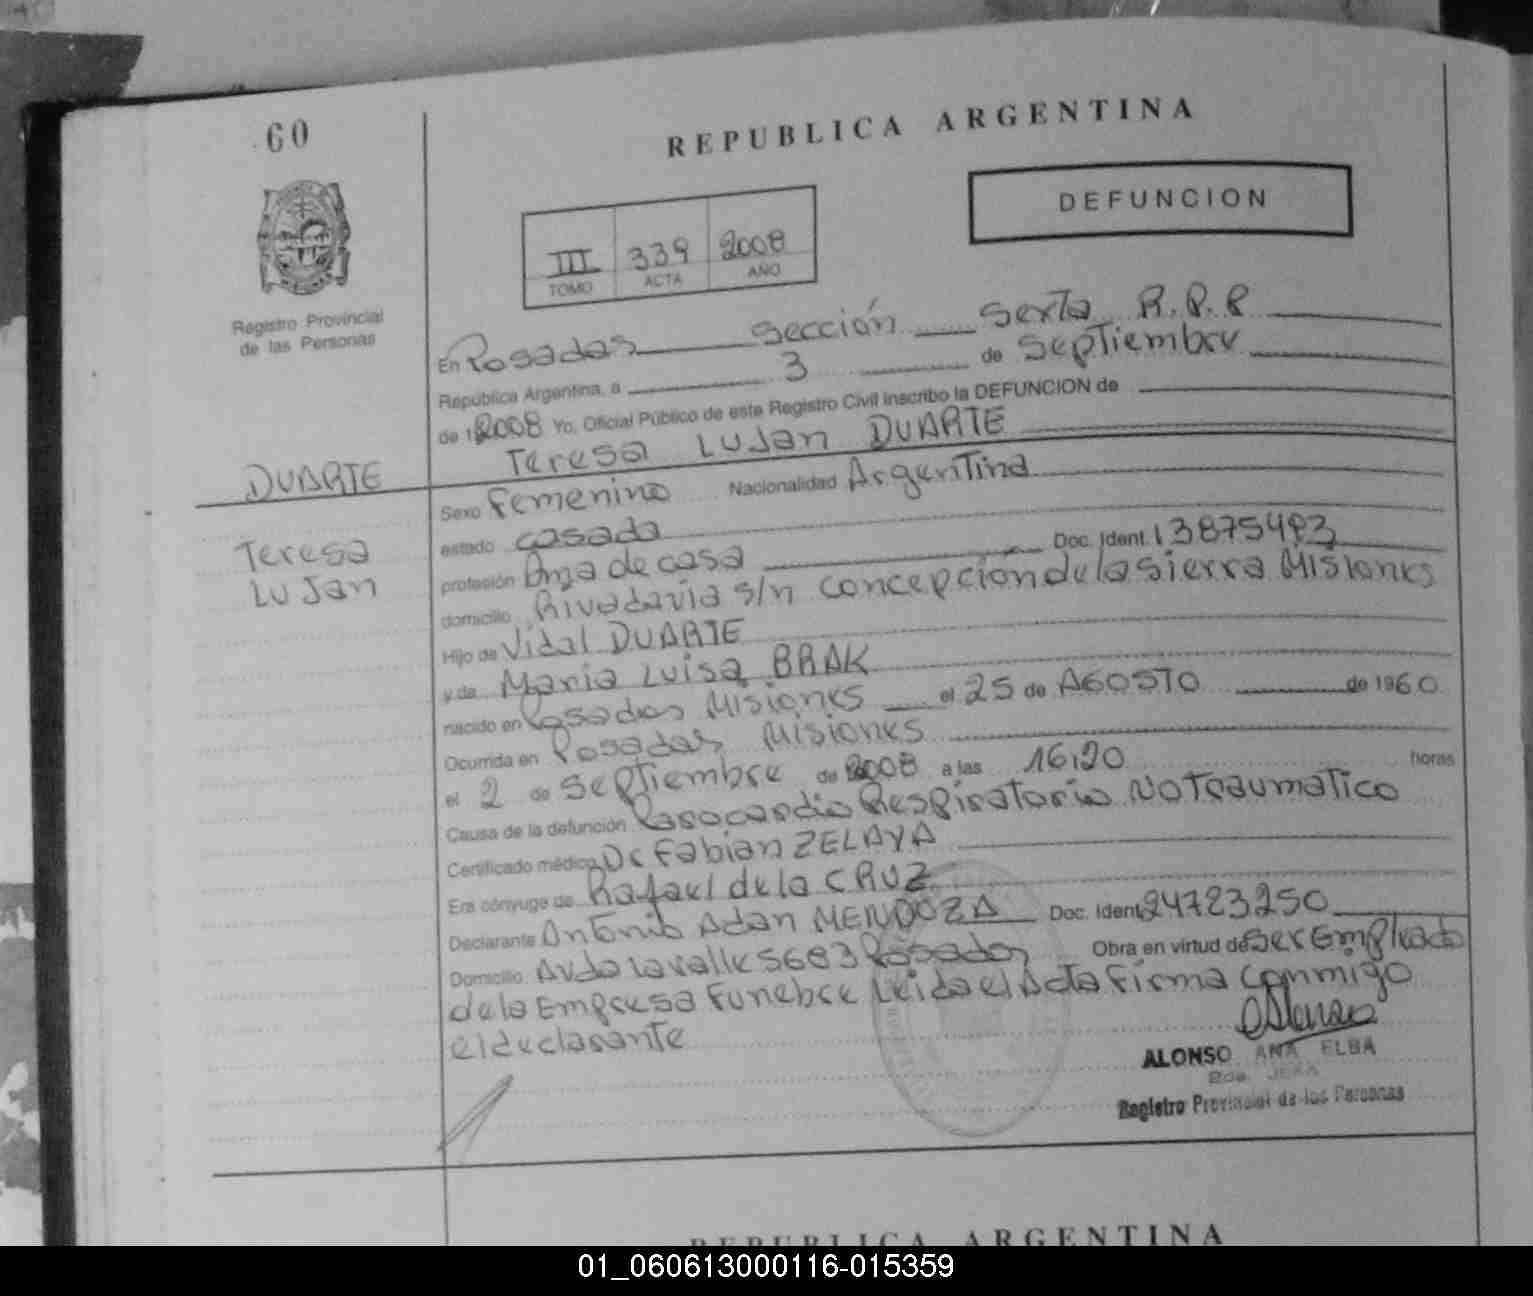 60
REPUBLICA ARGENTINA
DEFUNCION
III 339 2008
TOMO ACTA AÑO
Registro Provincial
de las Personas
En Posadas Sección Sexta R.P.P
República Argentina, a 3 de Septiembre
de 2008 Yo, Oficial Público de este Registro Civil inscribo la DEFUNCION de
Teresa Lujan DUARTE
DUARTE
Teresa
Lujan
Sexo Femenino Nacionalidad Argentina
estado casada
profesión Ama de casa Doc. Ident. 13875493
domicilio Rivadavia s/n concepcion de la sierra Misiones
Hijo de Vidal DUARTE
y de Maria Luisa BRAK
nacido en Posadas Misiones el 25 de AGOSTO de 1960
Ocurrida en Posadas Misiones
el 2 de Septiembre de 2008 a las 16,20 horas
Causa de la defunción Parocardio Respiratorio No Traumatico
Certificado médico Dr Fabian ZELAYA
Era cónyuge de Rafael de la CRUZ
Declarante Antonio Adan MENDOZA Doc. Ident 24723250
Domicilio Avda Lavalle 5683 Posadas Obra en virtud de ser Empleado
de la Empresa Funebre Leida el Acta Firma Conmigo
el declarante
ALONSO ANA ELBA
2da. JEFA
Registro Provincial de las Personas
REPUBLICA ARGENTINA
01_060613000116-015359